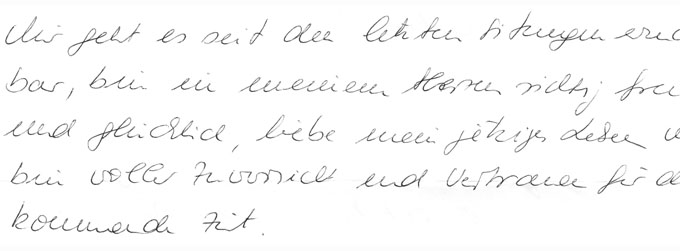 Mir geht es seit den letzten Sitzungen
bar, bin in meinem Herzen richtig
und glücklich, liebe mein jetziges Leben
bin voller Zuversicht und Vertrauen für
kommende Zeit.